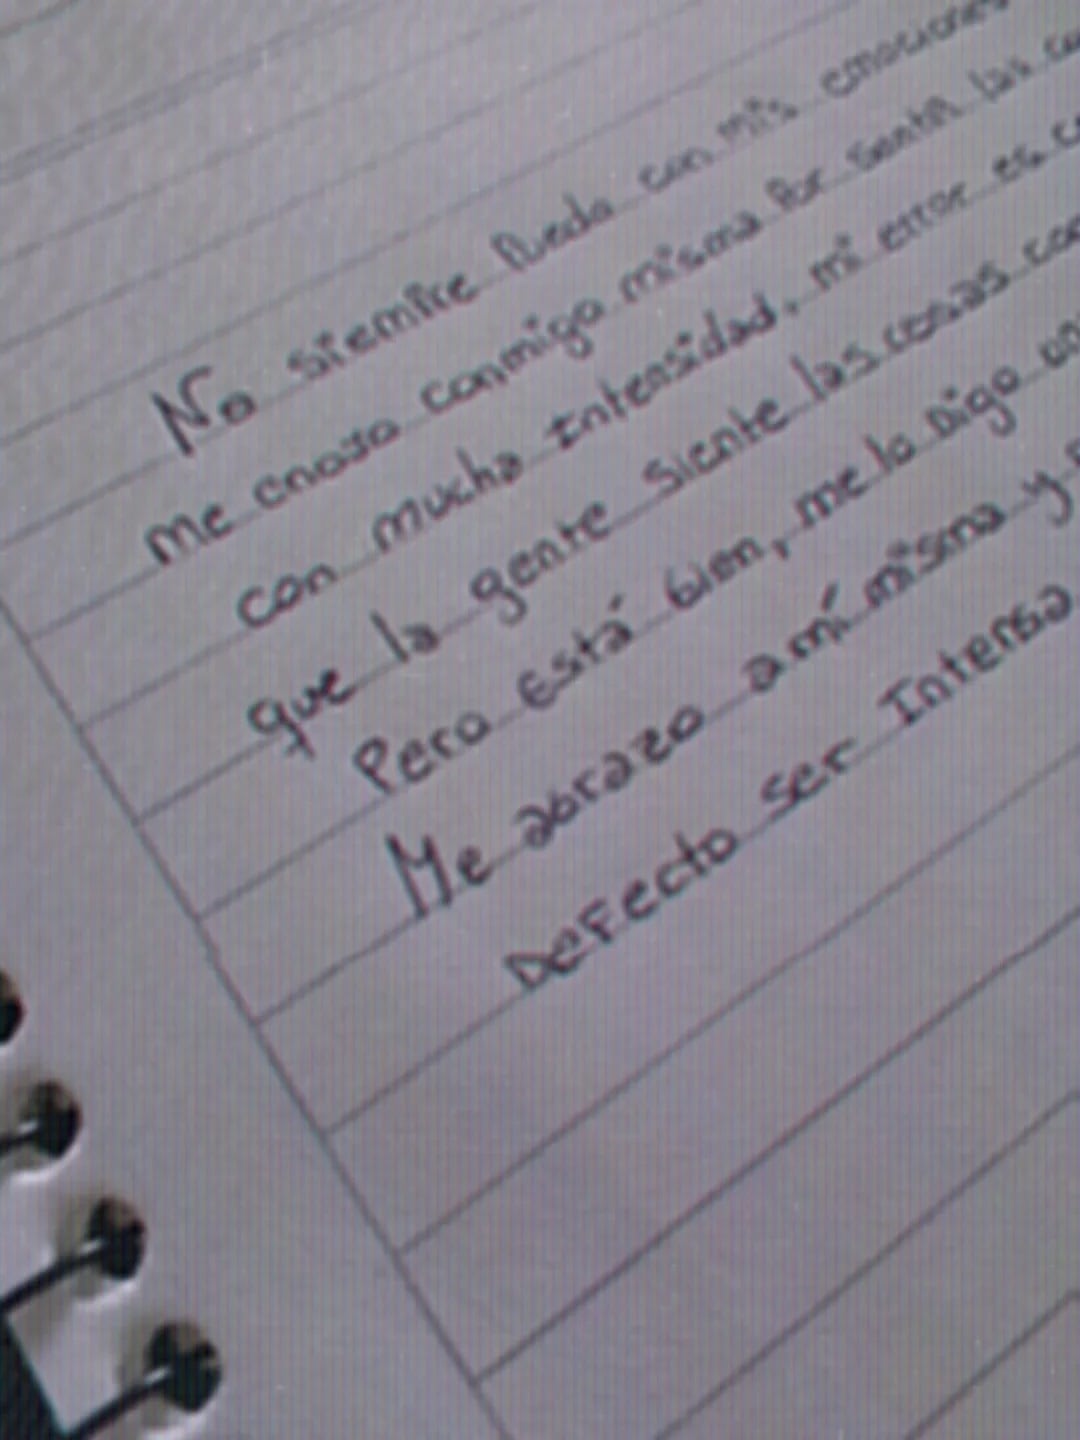 No siempre Puedo con mis emociones
me enojo conmigo misma Por sentir las
con mucha Intensidad, mi error es
que la gente siente las cosas
Pero Está bien, me lo Digo
Me abrazo a mí misma y
DeFecto ser Intensa